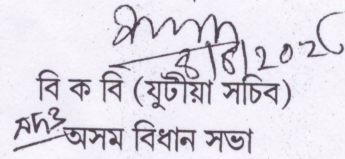 8/8/202
বি ক বি (যুটীয়া সচিব)
অসম বিধান সভা